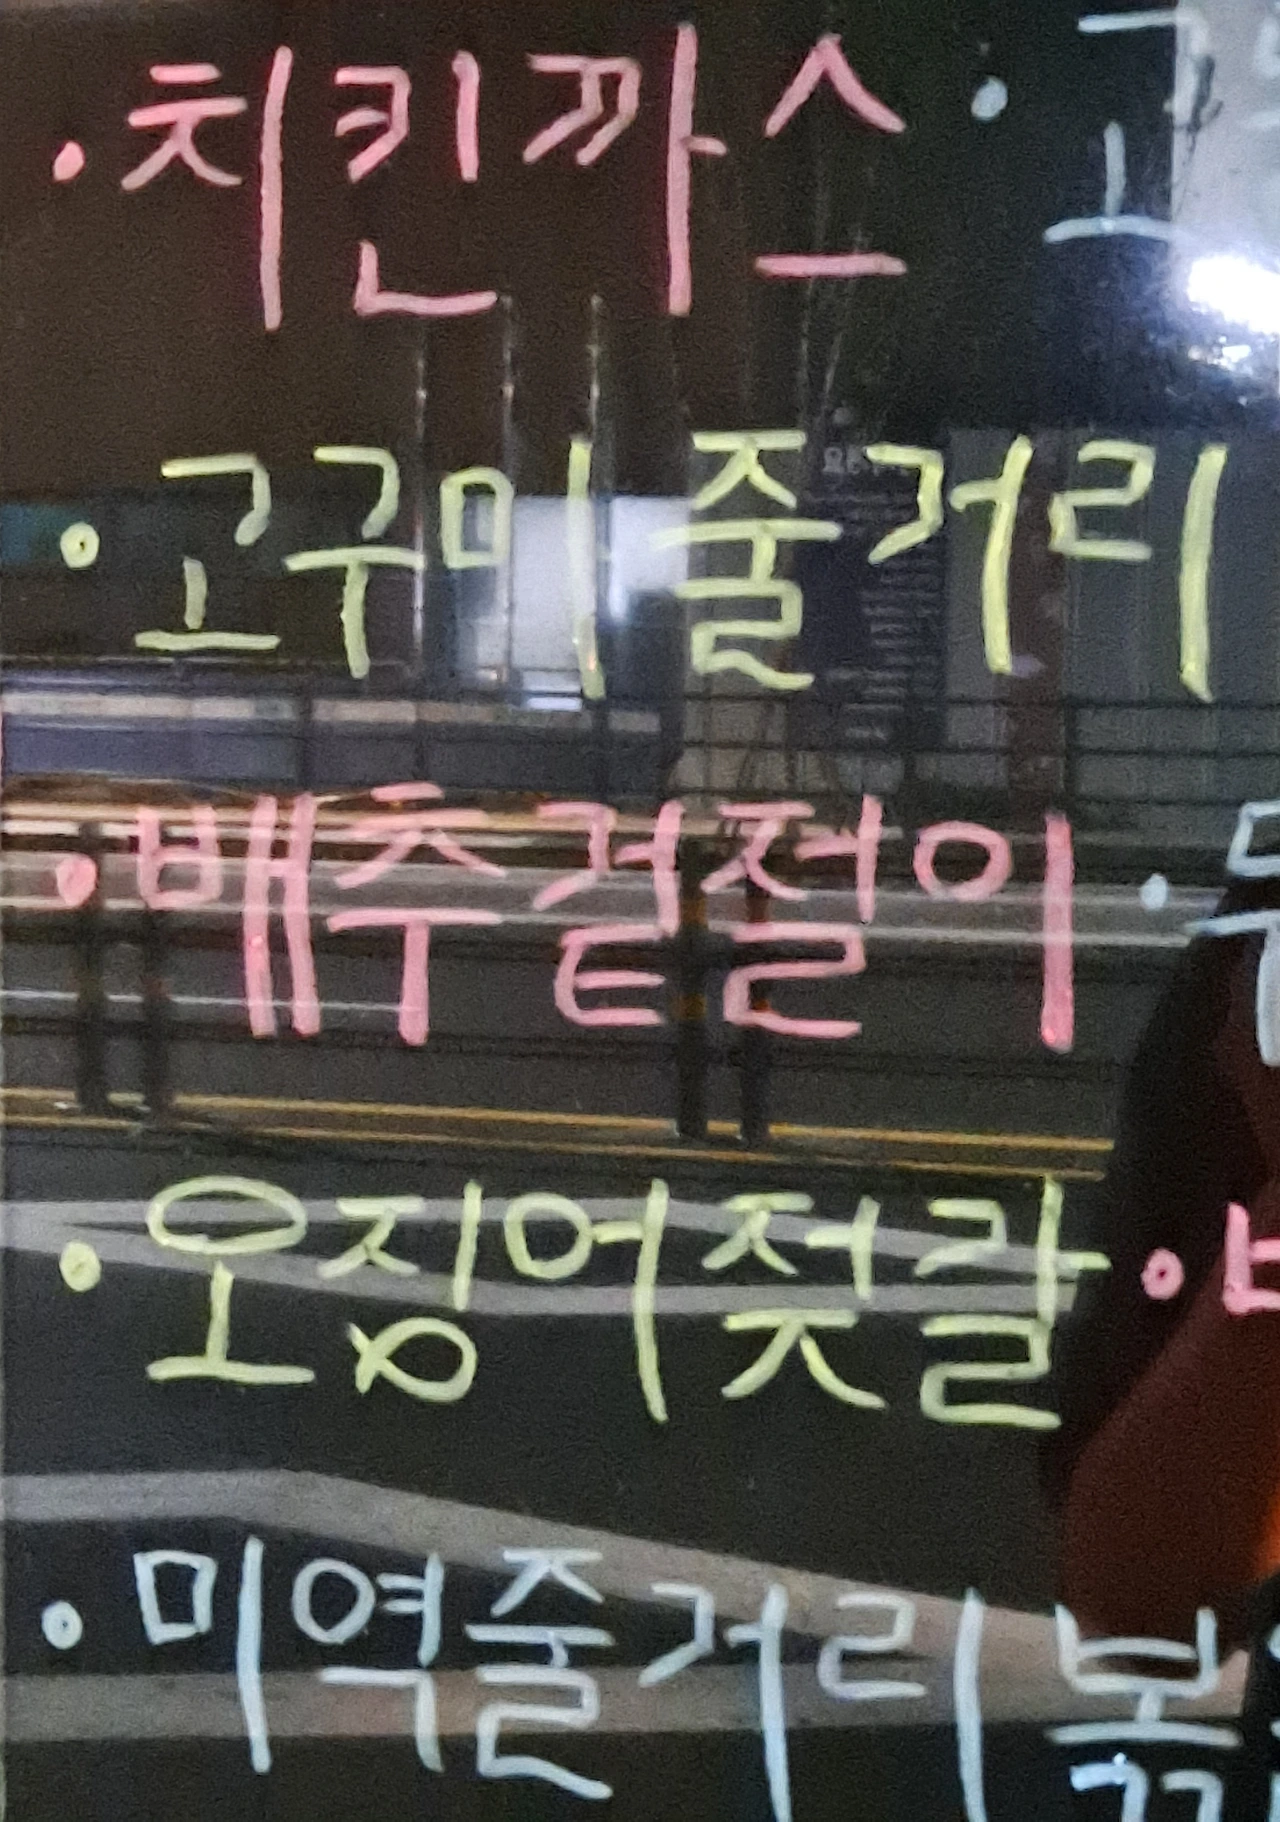 ·치킨까스 ·
·고구미줄거리
·배추겉절이 ·
·오징어젓갈 ·
·미역줄거리볶